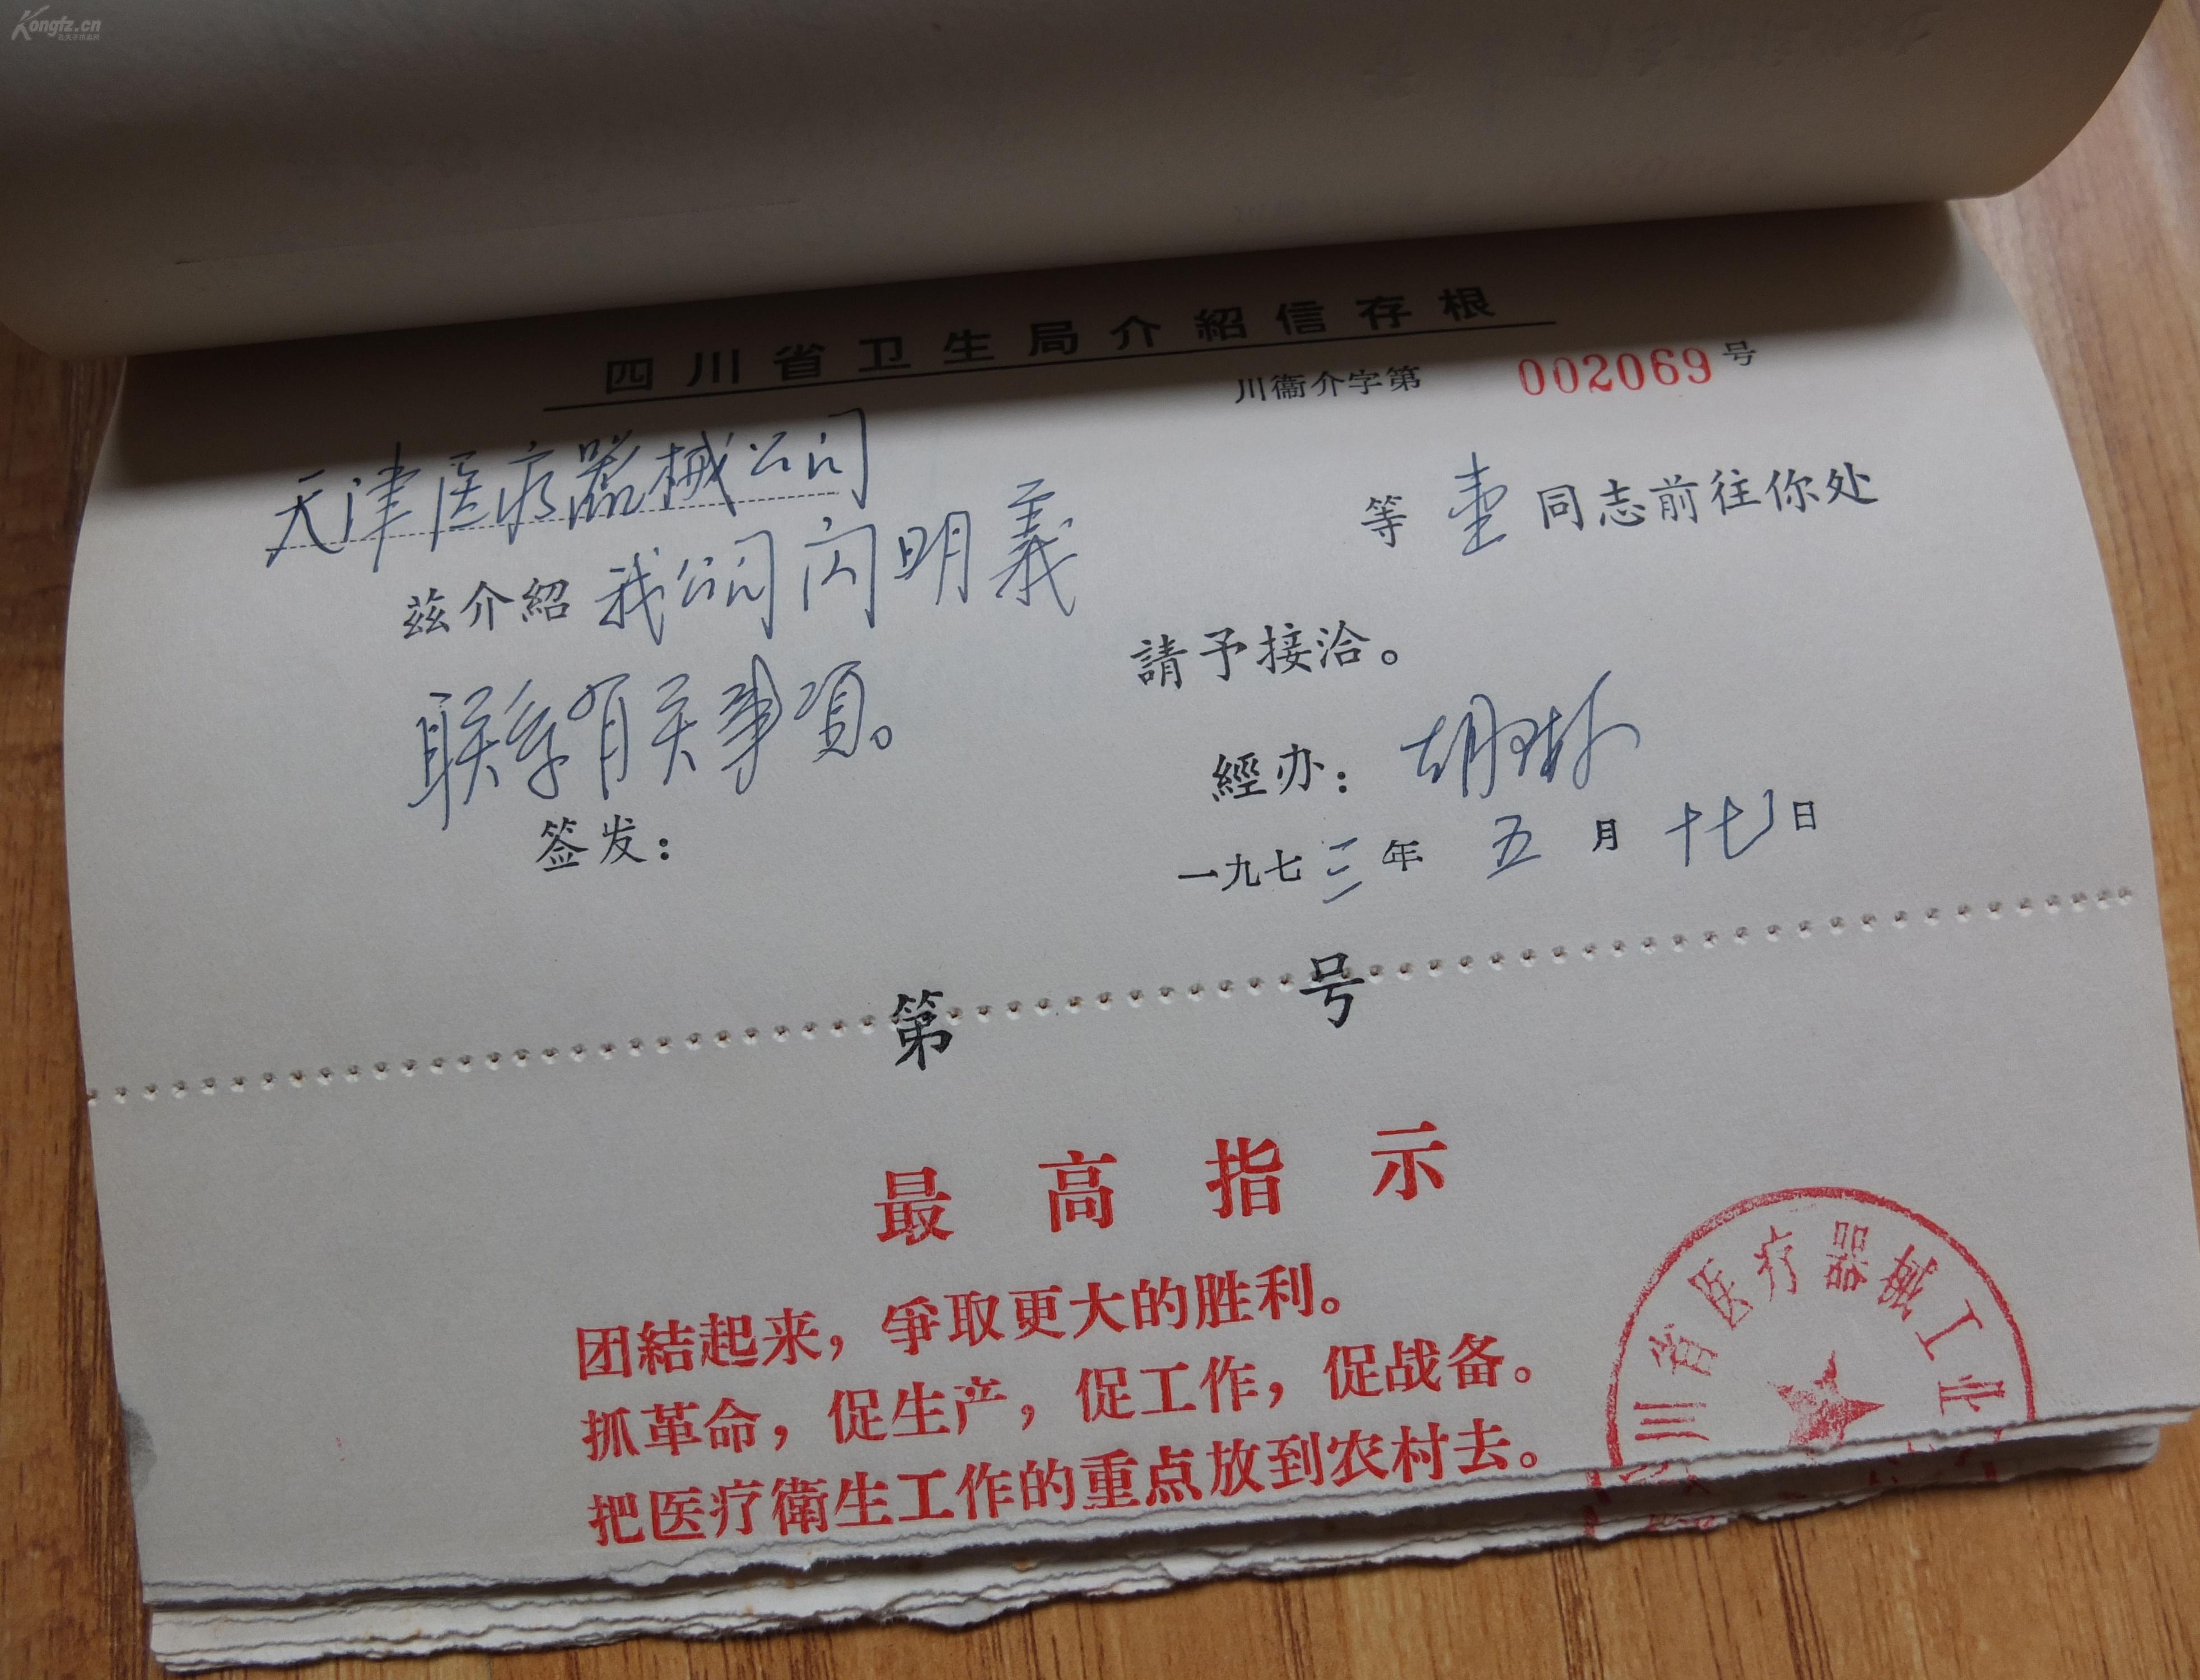 Kongfz.cn
四川省卫生局介紹信存根
川衞介字第 002069 号
天津医疗器械公司
茲介紹 我公司闪明義 等 壹 同志前往你处
联系有关事項。 請予接洽。
签发： 經办： 胡
一九七三年 五 月 十七日
第 号
最高指示
团結起来，爭取更大的胜利。
抓革命，促生产，促工作，促战备。
把医疗衛生工作的重点放到农村去。
川省医疗器械工业